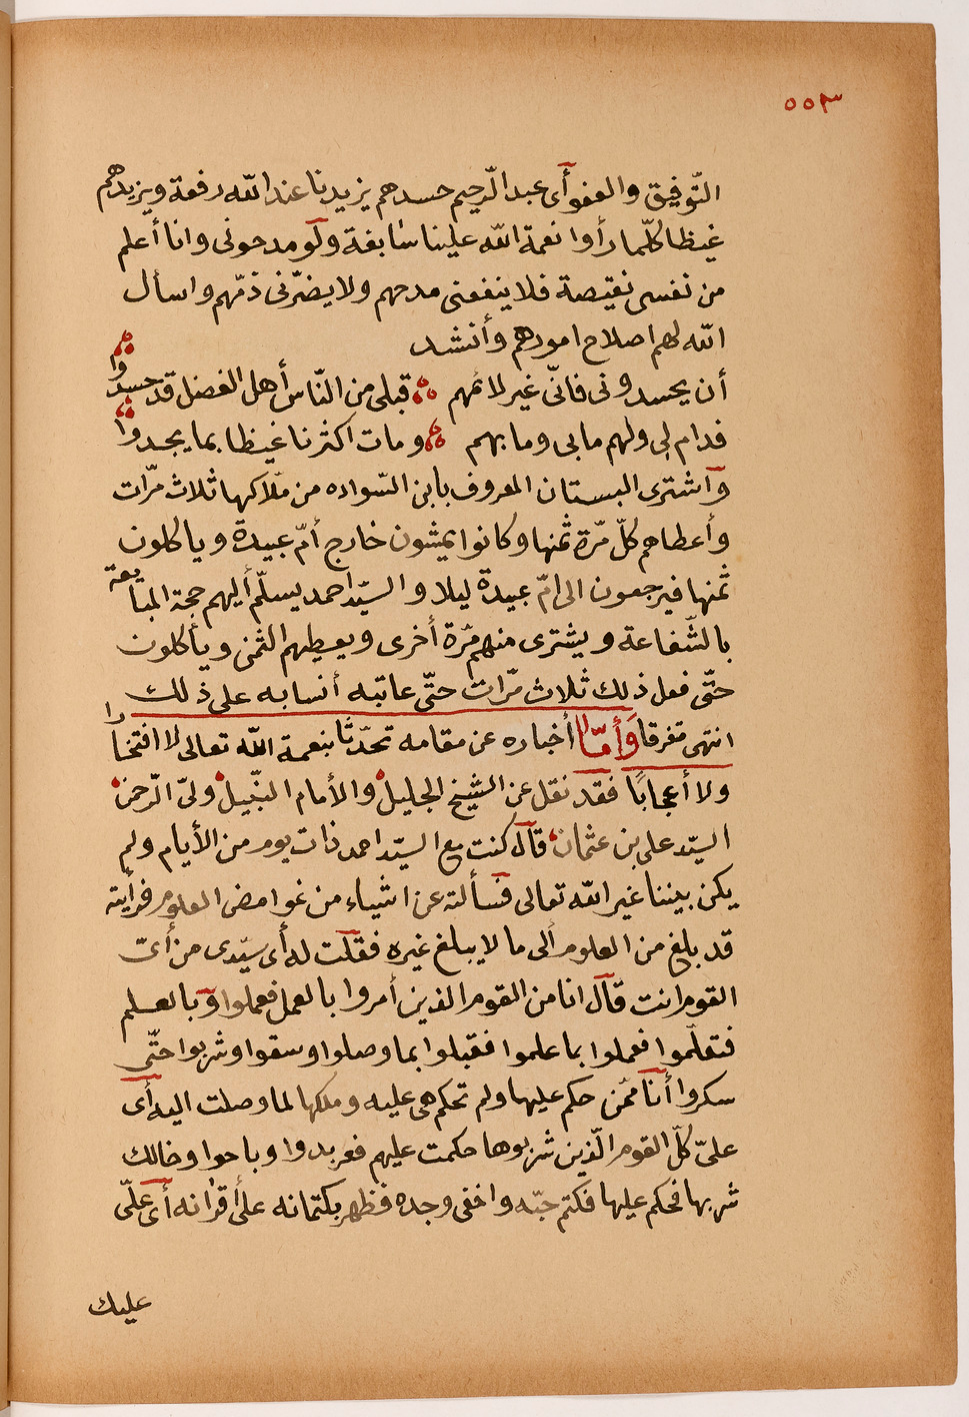 ٥٥٣
التّوفيق والعفو أى عبد الرّحيم حسدهم يزيدنا عند اللّه رفعة ويزيدهم
غيظا كلّما رأوا نعمة اللّه علينا سابغة ولو مدحونى وانا أعلم
من نفسى نقيصة فلا ينفعنى مدحهم ولا يضرّنى ذمّهم واسأل
اللّه لهم اصلاح امورهم وأنشد
أن يحسدونى فانّى غير لائمهم قبلى من النّاس أهل الفضل قد حسدوا
فدام لى ولهم مابى وما بهم ومات اكثرنا غيظا بما يجدوا
وآشترى البستان المعروف بابن السّواده من ملّاكها ثلاث مرّات
وأعطاهم كلّ مرّة ثمنها وكانوا يمشون خارج أمّ عبيدة وياكلون
ثمنها فيرجعون الى امّ عبيدة ليلا والسيّد احمد يسلّم أليهم حجة المبايعة
بالشّفاعة ويشترى منهم مرّة أخرى ويعطيهم الثمن ويأكلون
حتّى فعل ذلك ثلاث مرّات حتّى عاتبه أنسابه على ذلك
انتهى متفرقا وَأمّا أخباره عن مقامه تحدّثا بنعمة اللّه تعالى لا افتخارا
ولا أعجابًا فقد نقل عن الشيخ الجليل والأمام النّبيل ولىّ الرّحمن
السيّد على بن عثمان قال كنت مع السيّد احمد ذات يوم من الأيام ولم
يكن بيننا غير اللّه تعالى فسألته عن اشياء من غوامض العلوم فرأيته
قد بلغ من العلوم ألى ما لا يبلغ غيره فقلت له أى سيّدى من أىّ
القوم انت قال انا من القوم الذين أمروا بالعمل فعملوا وبالعلم
فتعلّموا فعملوا بما علموا فقبلوا بما وصلوا وسقوا وشربوا حتّى
سكروا أنا ممّن حكم عليها ولم تحكم هى عليه وملكها لما وصلت اليه أى
علىّ كلّ القوم الّذين شربوها حكمت عليهم فعربدوا وباحوا وخالك
شربها فحكم عليها فكتم حبّه واخفى وجده فظهر بكتمانه على أقرانه أى علىّ
عليك